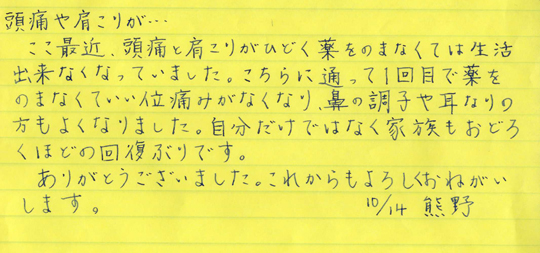 頭痛や肩こりが…
ここ最近、頭痛と肩こりがひどく薬をのまなくては生活
出来なくなっていました。こちらに通って1回目で薬を
のまなくていい位痛みがなくなり、鼻の調子や耳なりの
方もよくなりました。自分だけではなく家族もおどろ
くほどの回復ぶりです。
ありがとうございました。これからもよろしくおねがい
します。 10/14 熊野